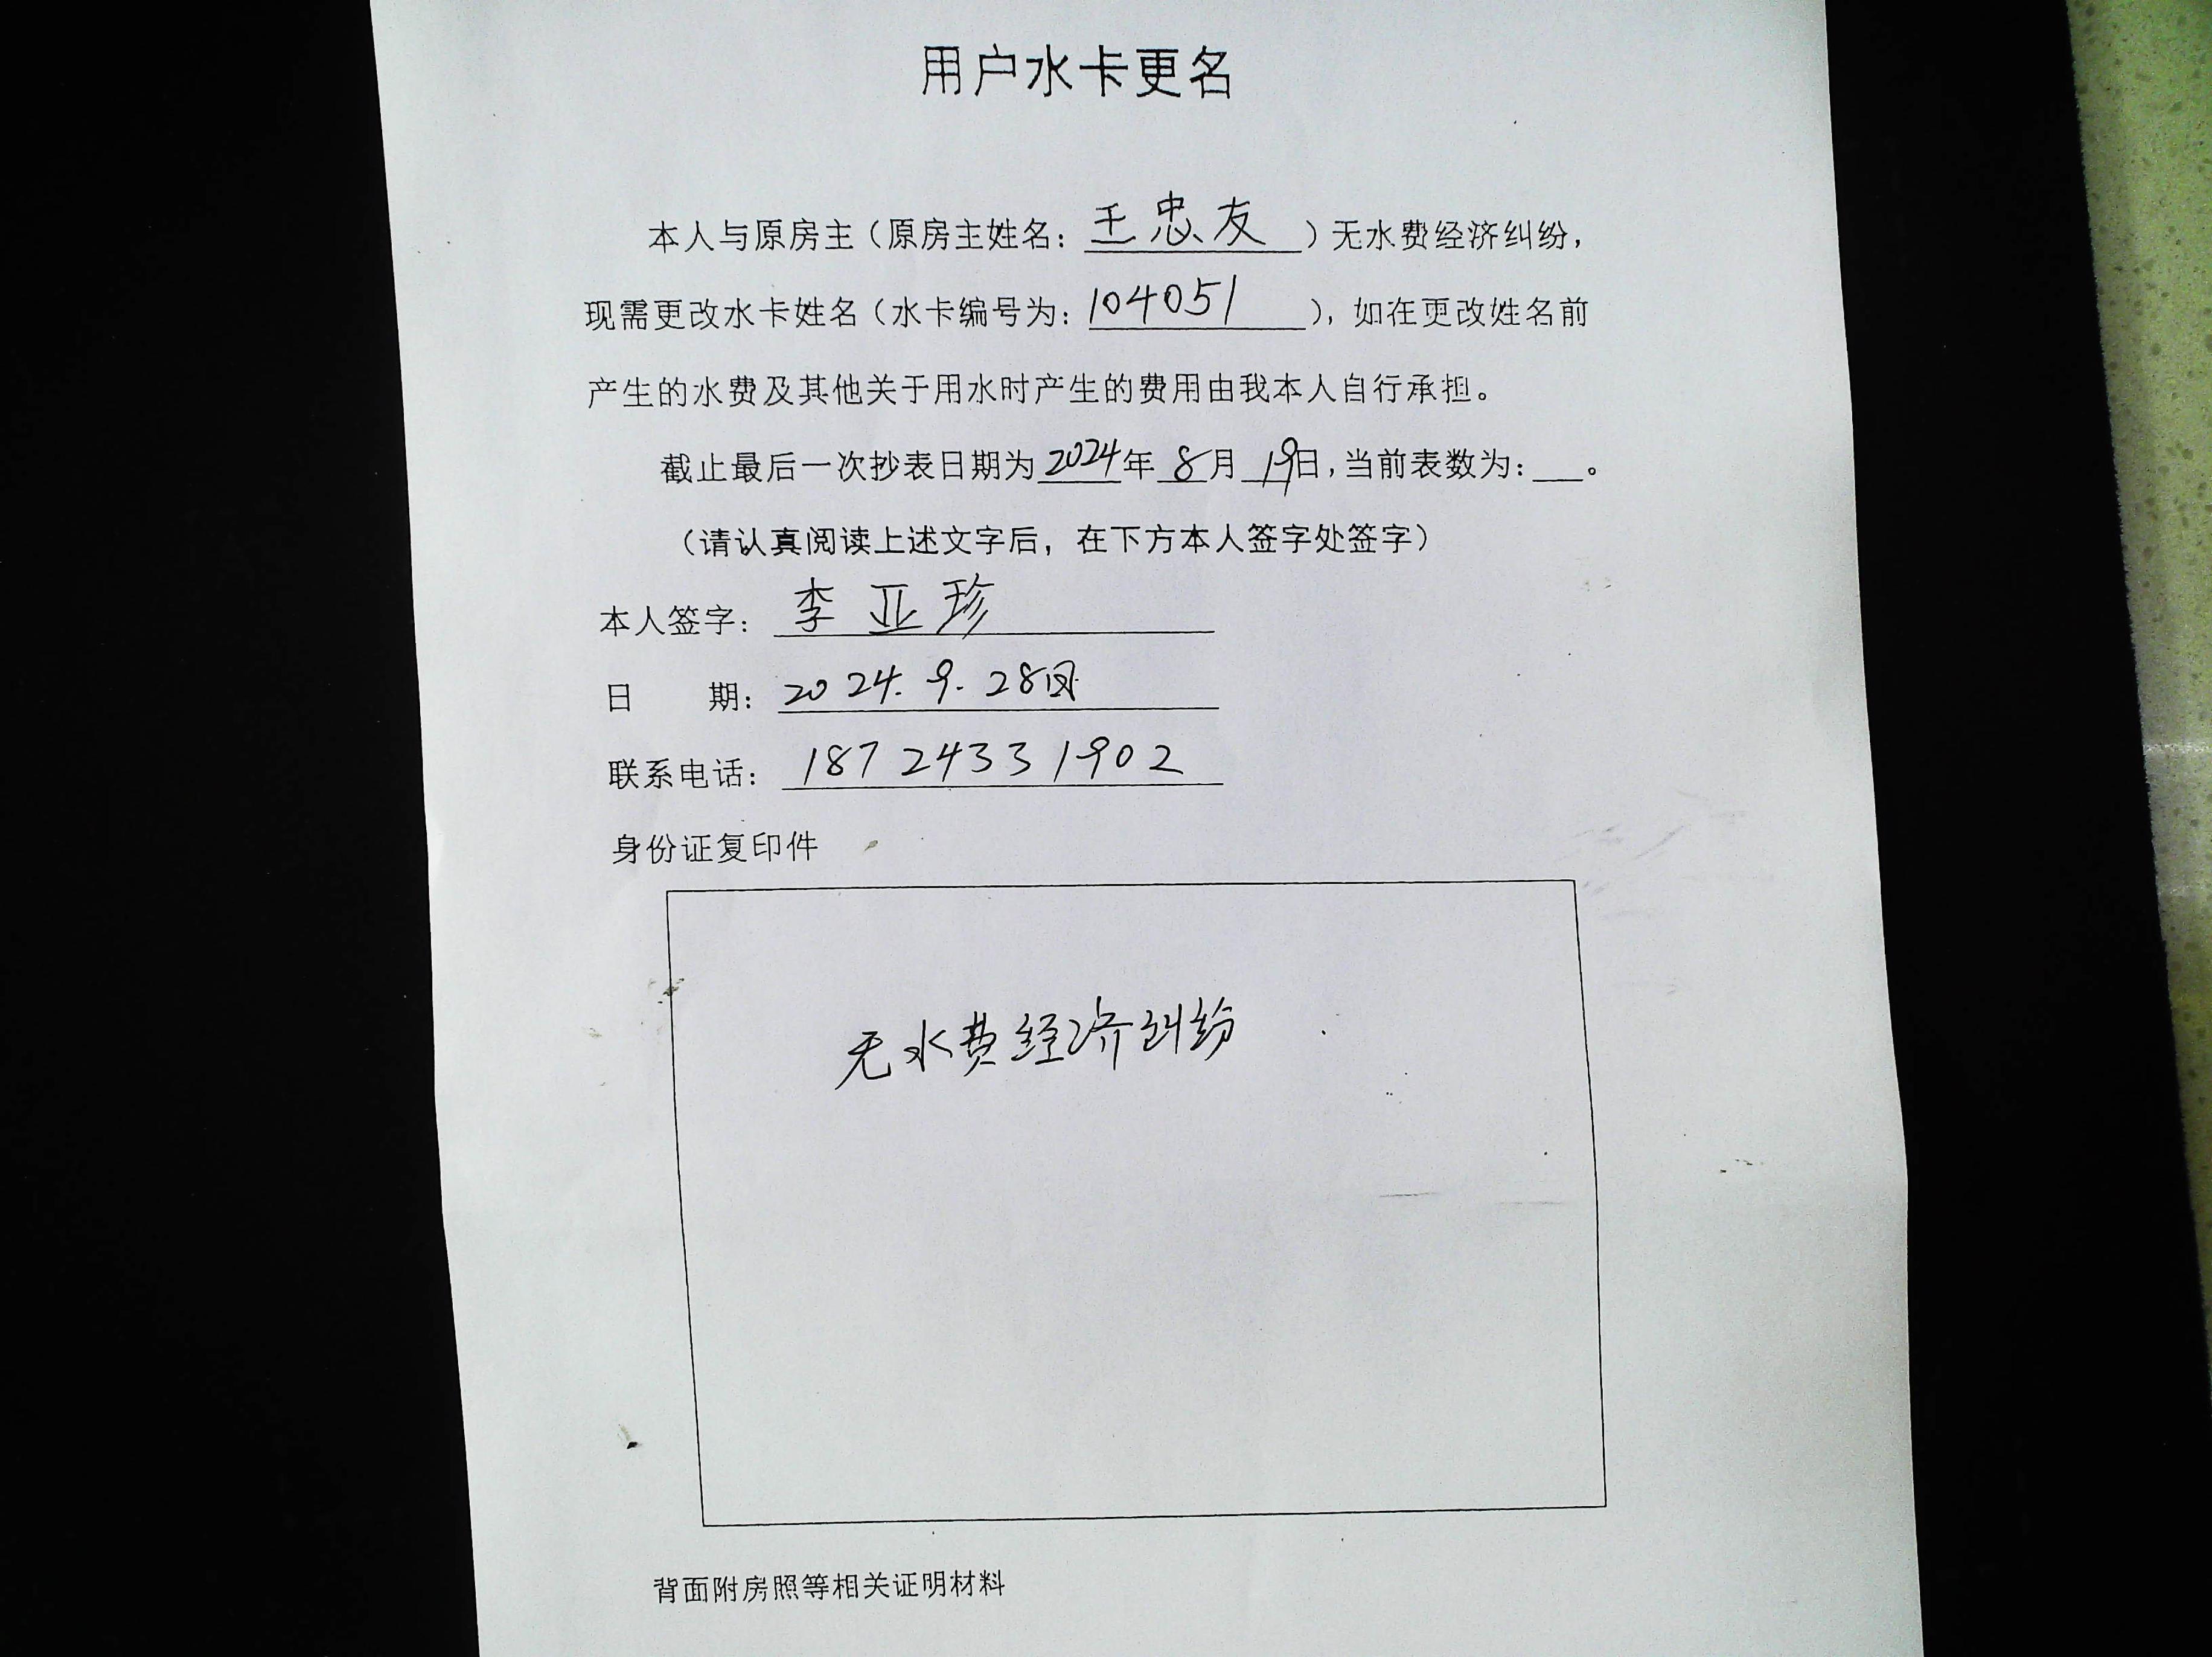 用户水卡更名
本人与原房主（原房主姓名：王忠友）无水费经济纠纷，
现需更改水卡姓名（水卡编号为：104051），如在更改姓名前
产生的水费及其他关于用水时产生的费用由我本人自行承担。
截止最后一次抄表日期为2024年8月19日，当前表数为：___。
（请认真阅读上述文字后，在下方本人签字处签字）
本人签字：李亚珍
日 期：2024.9.28日
联系电话：18724331902
身份证复印件
无水费经济纠纷
背面附房照等相关证明材料